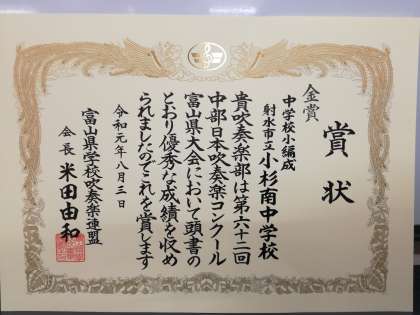 賞状
金賞
中学校小編成
射水市立小杉南中学校
貴吹奏楽部は第六十二回
中部日本吹奏楽コンクール
富山県大会において頭書の
とおり優秀な成績を収め
られましたのでこれを賞します
令和元年八月三日
富山県学校吹奏楽連盟
会長 米田由和